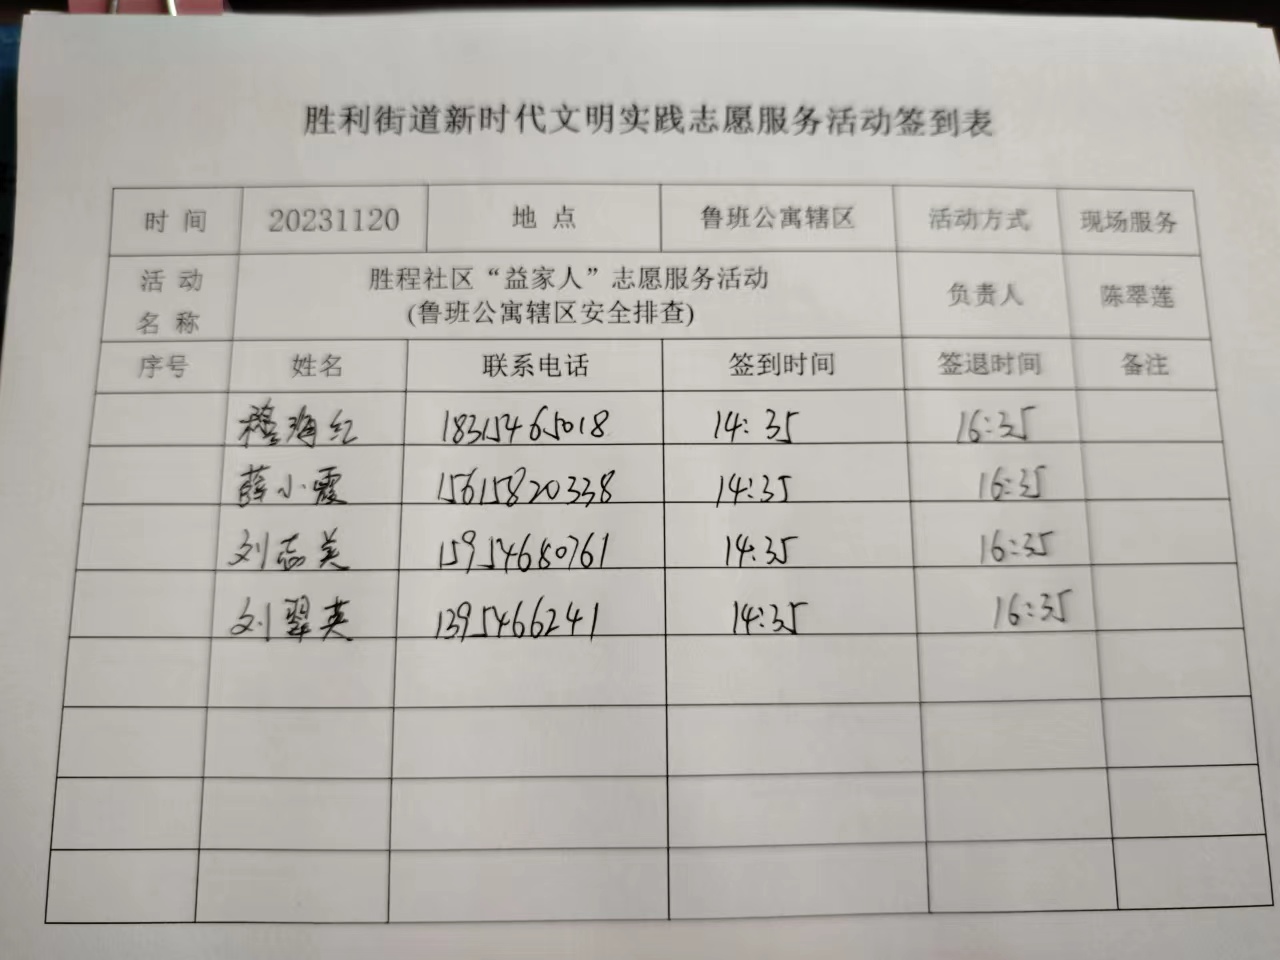 胜利街道新时代文明实践志愿服务活动签到表
时 间 20231120 地 点 鲁班公寓辖区 活动方式 现场服务
活 动 名 称 胜程社区“益家人”志愿服务活动 负责人 陈翠莲
(鲁班公寓辖区安全排查)
序号 姓名 联系电话 签到时间 签退时间 备注
穆海红 18315465018 14:35 16:35
薛小霞 15615820338 14:35 16:35
刘志美 15954680761 14:35 16:35
刘翠英 1395466241 14:35 16:35